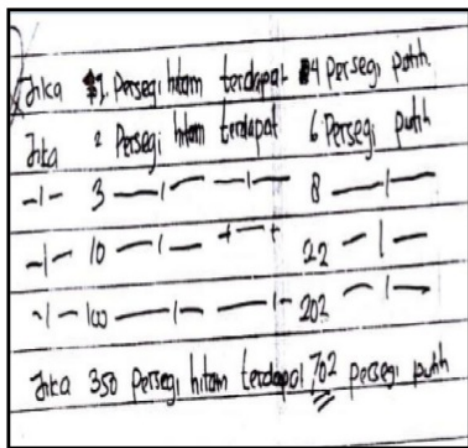 Jika 1 persegi hitam terdapat 4 persegi putih
Jika 2 persegi hitam terdapat 6 persegi putih
-1- 3 -1- -1- 8 -1-
-1- 10 -1- -1- 22 -1-
-1- 100 -1- -1- 202 -1-
Jika 350 persegi hitam terdapat 702 persegi putih